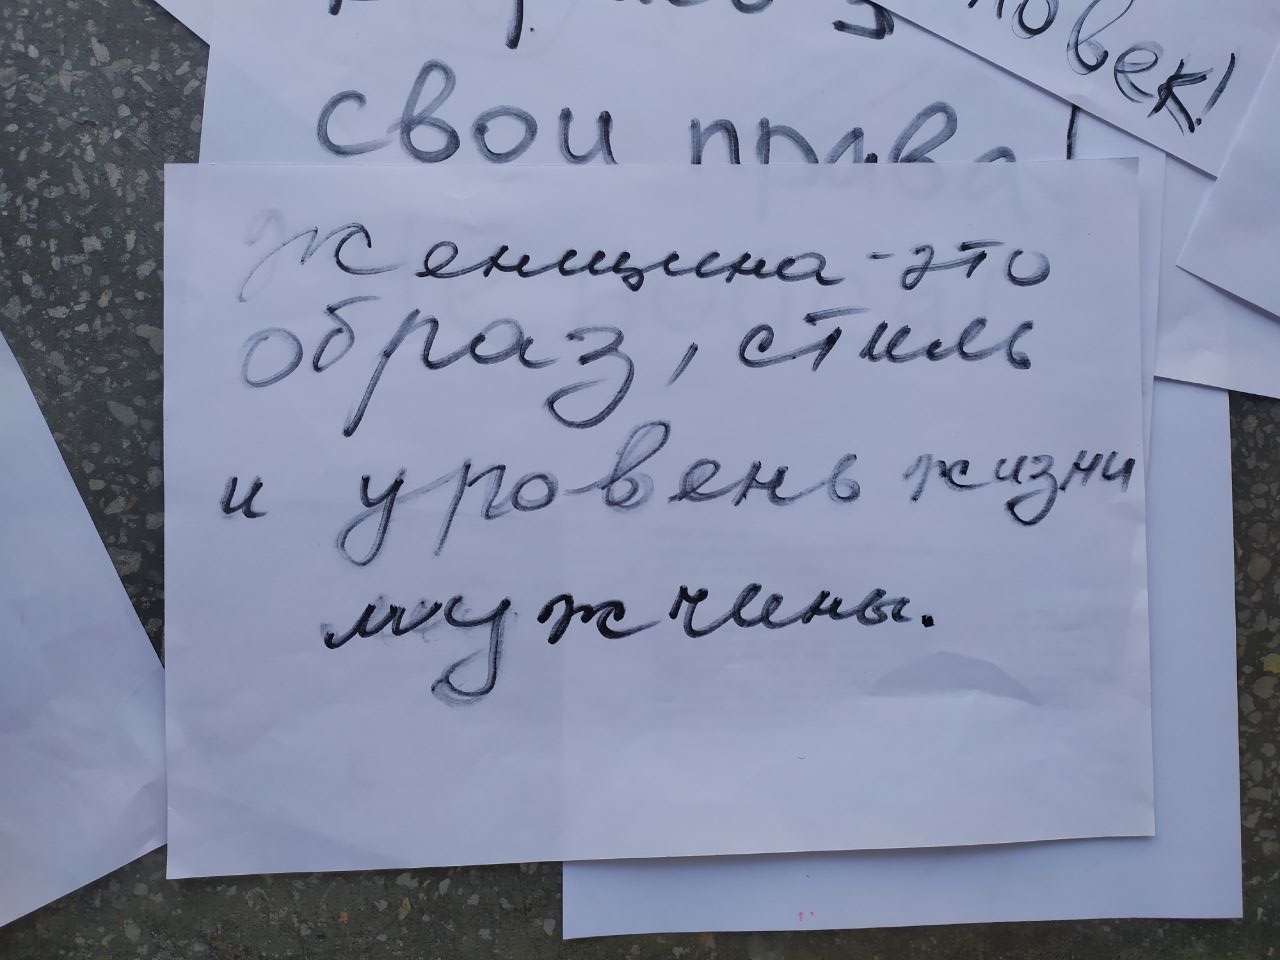 овек!
свои права!
Женщина - это
образ, стиль
и уровень жизни
мужчины.